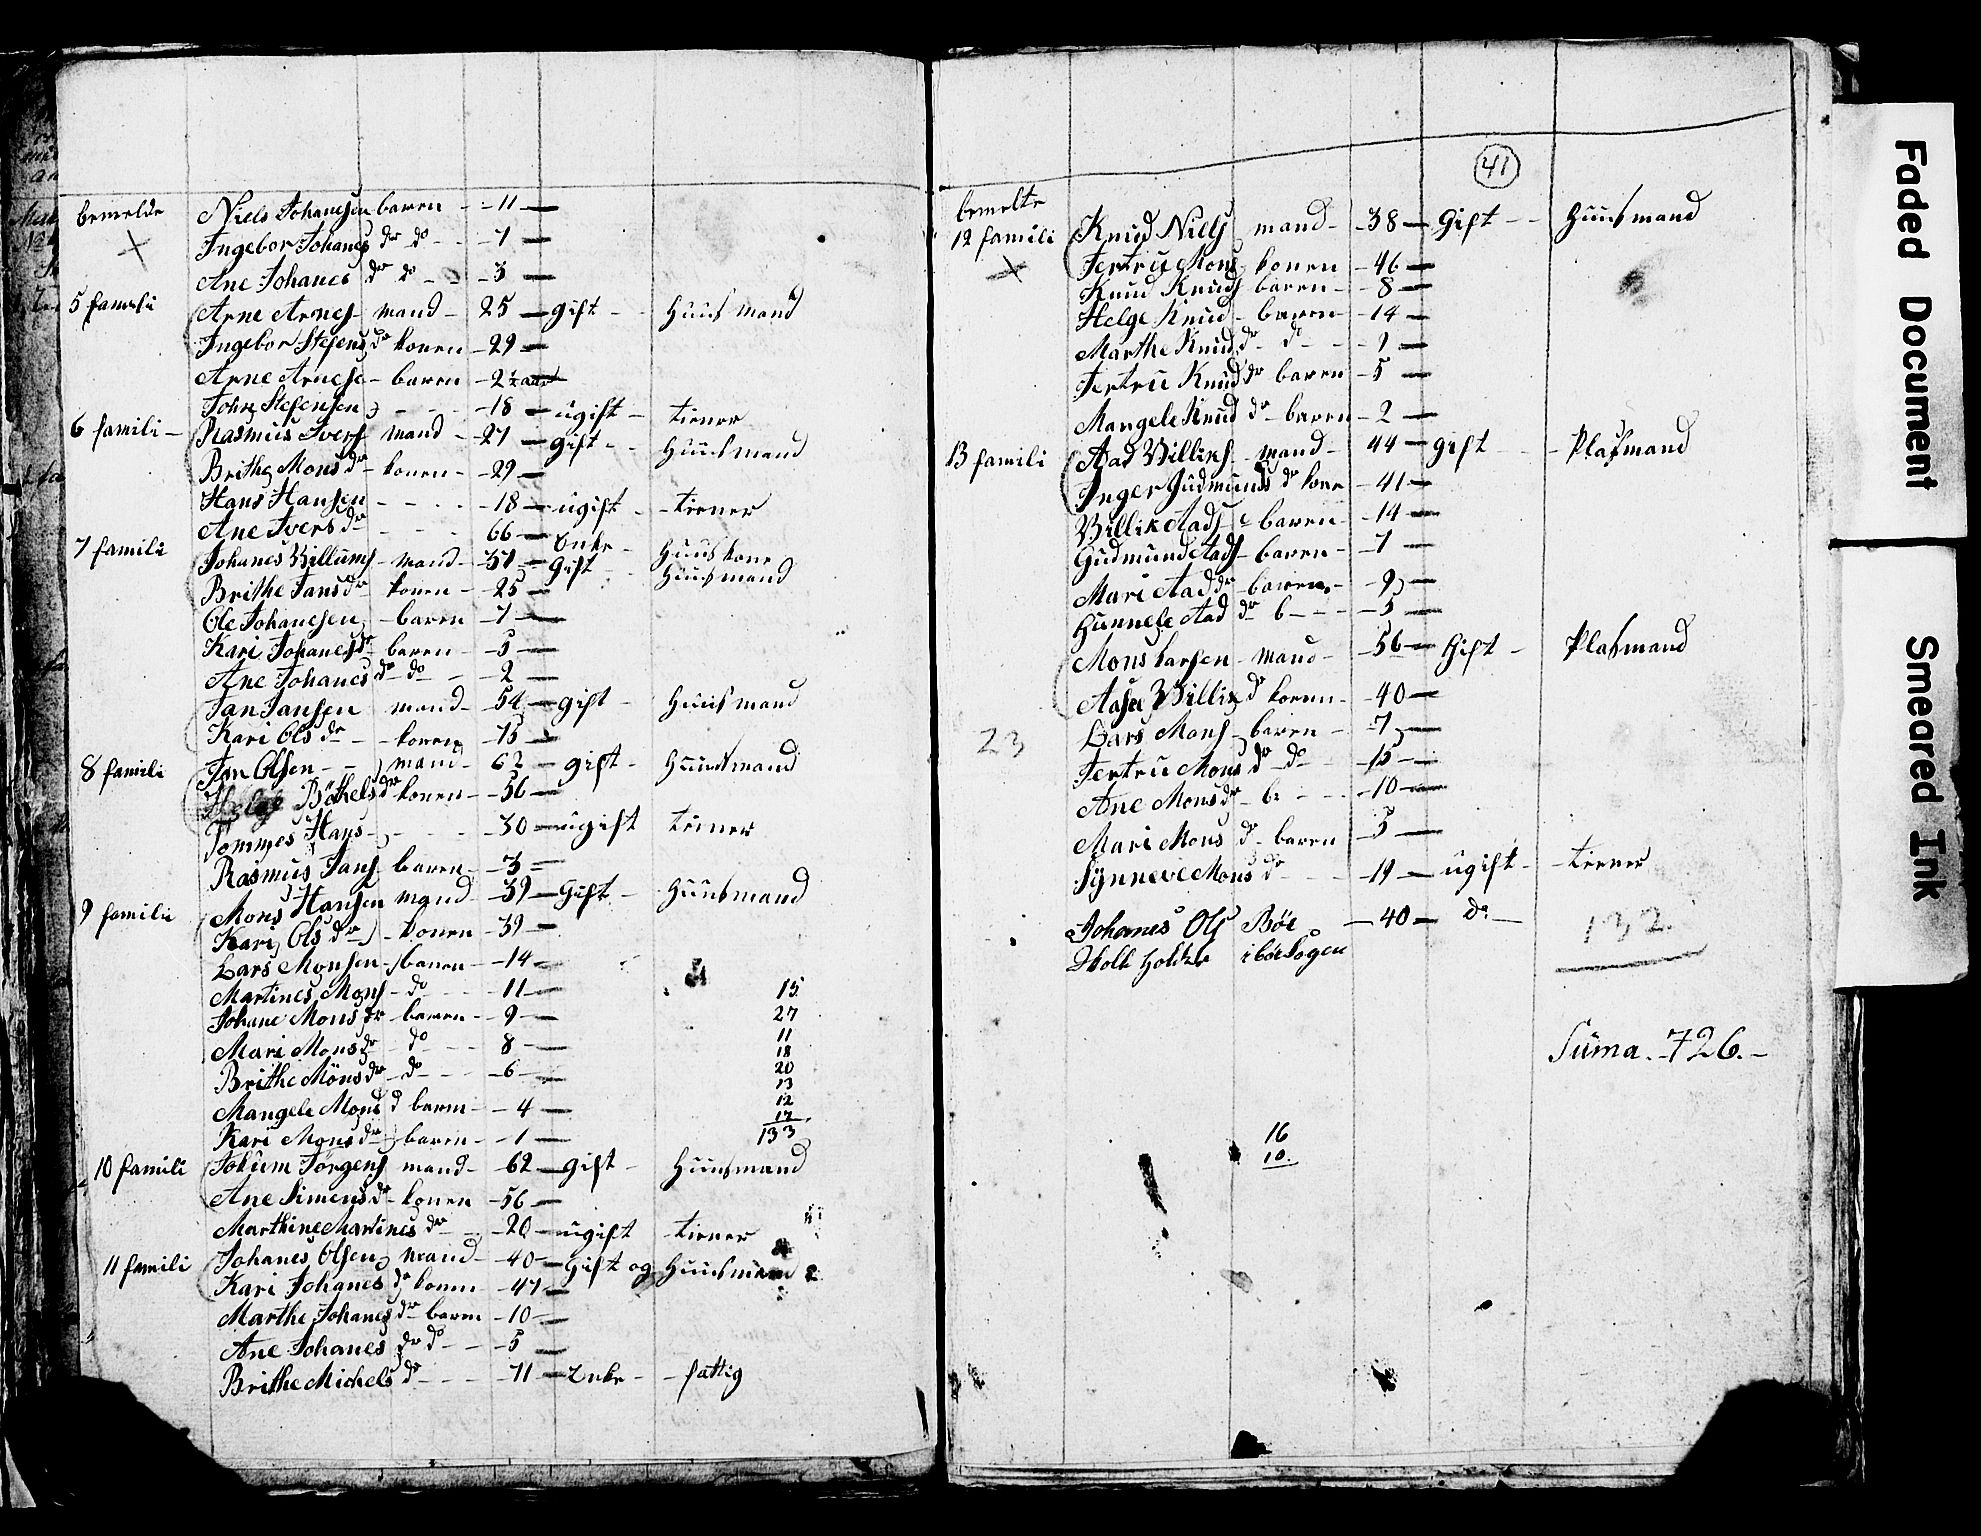 bemelde Niels Johanesen baren - 11 -
Ingebor Johanes dr do - - 7 -
Ane Johanes dr do - - 3 -
5 famili Arne Arnes - mand - 25 - gift - Huusmand
Ingebor Stefens dr konen - 29 -
Arne Arnese - baren - 2½ aar
John Stefensen - - - 18 - ugift - tiener
6 famili - Rasmus Ivers mand - 27 - gift - Huusmand
Brithe Mons dr - konen - 29 -
Hans Hansen - - - - 18 - ugift - tiener
Ane Ivers dr - - - 66 - Enke - Huuskone
7 famili Johanes Villums - mand - 37 - gift - Huusmand
Brithe Jans dr - konen - 25 -
Ole Johanesen - baren - 7 -
Kari Johanes dr - baren - 5 -
Ane Johanes dr - do - 2 -
Jan Jansen mand - 54 - gift - Huusmand
Kari Ols dr - - konen - 75 -
8 famili Jon Olsen - - mand - 62 - gift - Huusmand
Helge Böthels dr konen - 56 -
Tommes Hans - - - - 30 - ugift tiener
Rasmus Jans - baren - 3 =
9 famili Mons Hansen mand - 39 - Gift - Huusmand
Kari Ols dr - konen - 39 -
Lars Monsen - baren - 14 -
Martines Mons - do - - 11 - 15
Johane Mons dr - baren - 9 - 27
Mari Mons dr - do - - 8 - 11
18
Brithe Mons dr - do - - 6 - 20
13
Mangele Mons d baren - 4 - 12
17
Kari Mons dr - baren - 1 - 133
10 famili Jokum Jörgens mand - 62 - gift - Huusmand
Ane Simens dr - konen - 56 -
Marthine Martines dr - - 20 - ugift - tiener
11 famili Johanes Olsen mand - 40 - Gift og Huusmand
Kari Johanes dr konen - 47 -
Marthe Johanes dr - baren - 10 -
Ane Johanes dr do - - 5 -
Brithe Michels dr - - - 71 - Enke - - fattig
41
bemelte
12 famili Knud Nills mand - 38 - Gift - - Huusmand
Jertru Mons konen - 46 -
Knud Knuds baren - 8 -
Helge Knud - baren - 14 -
Marthe Knud dr - do - - 7 -
Jertru Knud dr baren - 5 -
Mangele Knud dr - baren - 2 -
13 famili Aad Villiks - mand - 44 - gift - - Plasmand
Inger Gudmunds dr kone - 41 -
Villik Aads - baren - 14 -
Gudmund Aads - baren - 7 -
Mari Aad dr - baren - 9 -
Gunnele Aad dr b - - - 5 -
Mons Larsen - mand - 56 - Gift - Plasmand
Aase Villik dr konen - 40 -
23 Lars Mons - baren - 7 -
Jertru Mons dr - do - 15 -
Ane Mons dr - b - - - 10 -
Mari Mons dr - baren 5 -
Synneve Mons dr - - - 19 - ugift - - tiener
Johanes Ols Böe - 40 - do - 132
i Böe Sogen
Suma. - 726. -
16
10
Faded Document
Smeared Ink